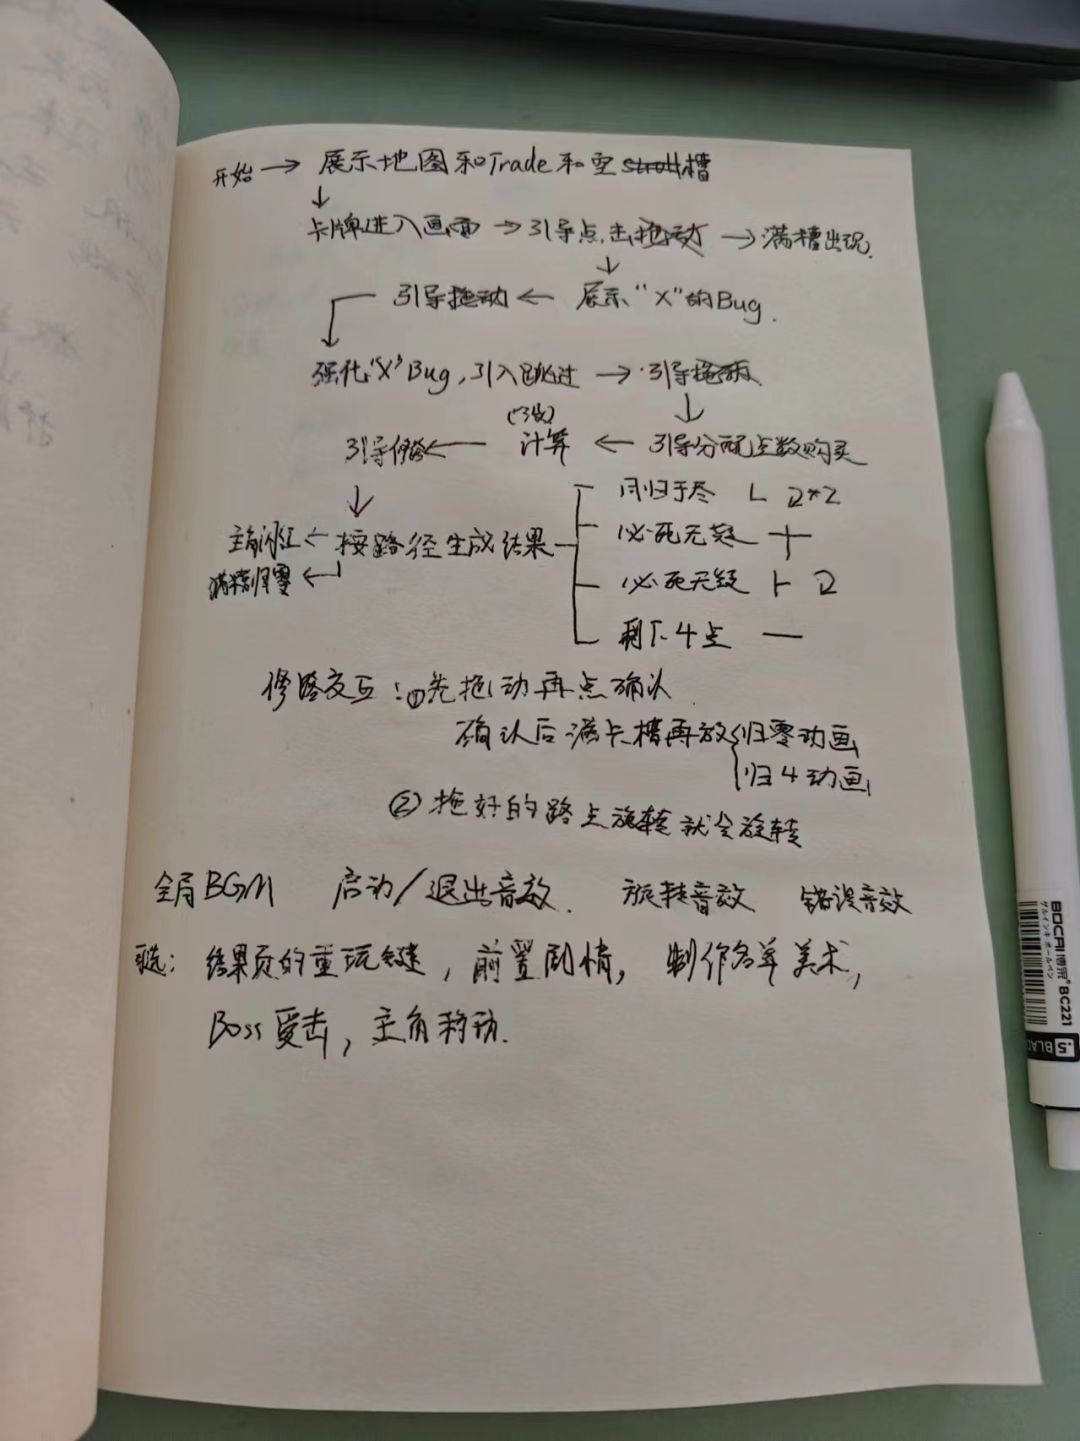 开始 → 展示地图和Trade和空槽
↓
卡牌进入画面 → 引导点击 → 满槽出现.
↓
引导拖动 ← 展示"X"的Bug.
强化"X"Bug,引入跳过 → 引导
↓
引导修路 ← 计算 ← 引导分配点数购买
↓
同归于尽 L 2*2
必死无疑 十
主角 ← 按路径生成结果
满槽归零 ←
必死无疑 ト 2
剩下4点 一
修路交互:①先拖动再点确认
确认后满卡槽再放 归零动画
归4动画
②拖好的路点旋转就会旋转
全局BGM 启动/退出音效. 旋转音效 错误音效
可选:结果页的重玩键,前置剧情,制作名单美术,
Boss受击,主角移动.
BOCAI博采® BC221
.5 BLAC